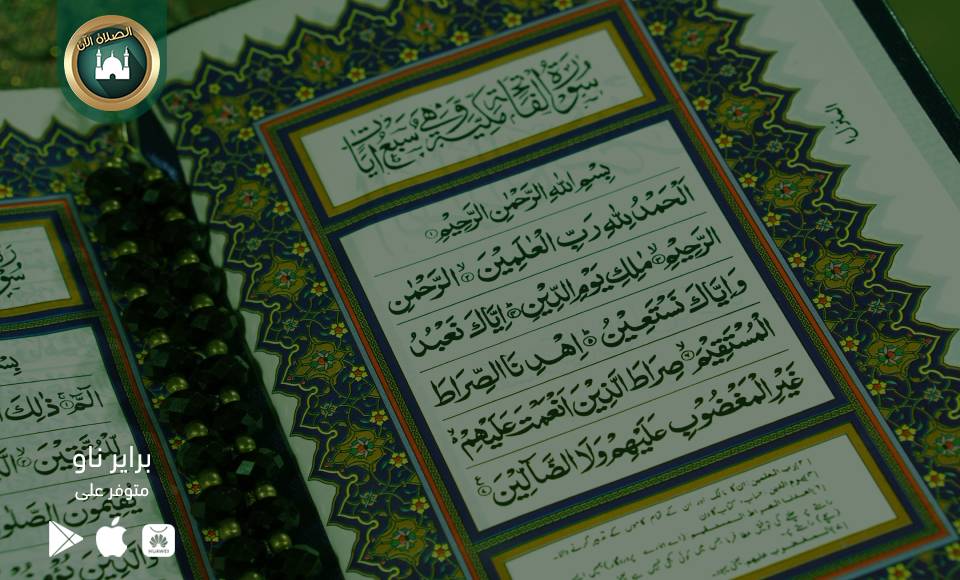 الصلاة الآن
سورة الفاتحة مكية وهي سبع آيات
المنزل
بِسْمِ اللهِ الرَّحْمٰنِ الرَّحِيْمِ ۝١
اَلْحَمْدُ لِلّٰهِ رَبِّ الْعٰلَمِيْنَ ۝٢ الرَّحْمٰنِ
الرَّحِيْمِ ۝٣ مٰلِكِ يَوْمِ الدِّيْنِ ۝٤ اِيَّاكَ نَعْبُدُ
وَاِيَّاكَ نَسْتَعِيْنُ ۝٥ اِهْدِنَا الصِّرَاطَ
الْمُسْتَقِيْمَ ۝٦ صِرَاطَ الَّذِيْنَ اَنْعَمْتَ عَلَيْهِمْ
غَيْرِ الْمَغْضُوْبِ عَلَيْهِمْ وَلَا الضَّآلِّيْنَ
بِسْ
الٓمّٓ ۝١ ذٰلِكَ ا
لِّلْمُتَّقِيْنَ ۝٢ الَّ
يُقِيْمُوْنَ الصَّلٰو
وَالَّذِيْنَ يُؤْمِ
براير ناو
متوفر على
HUAWEI